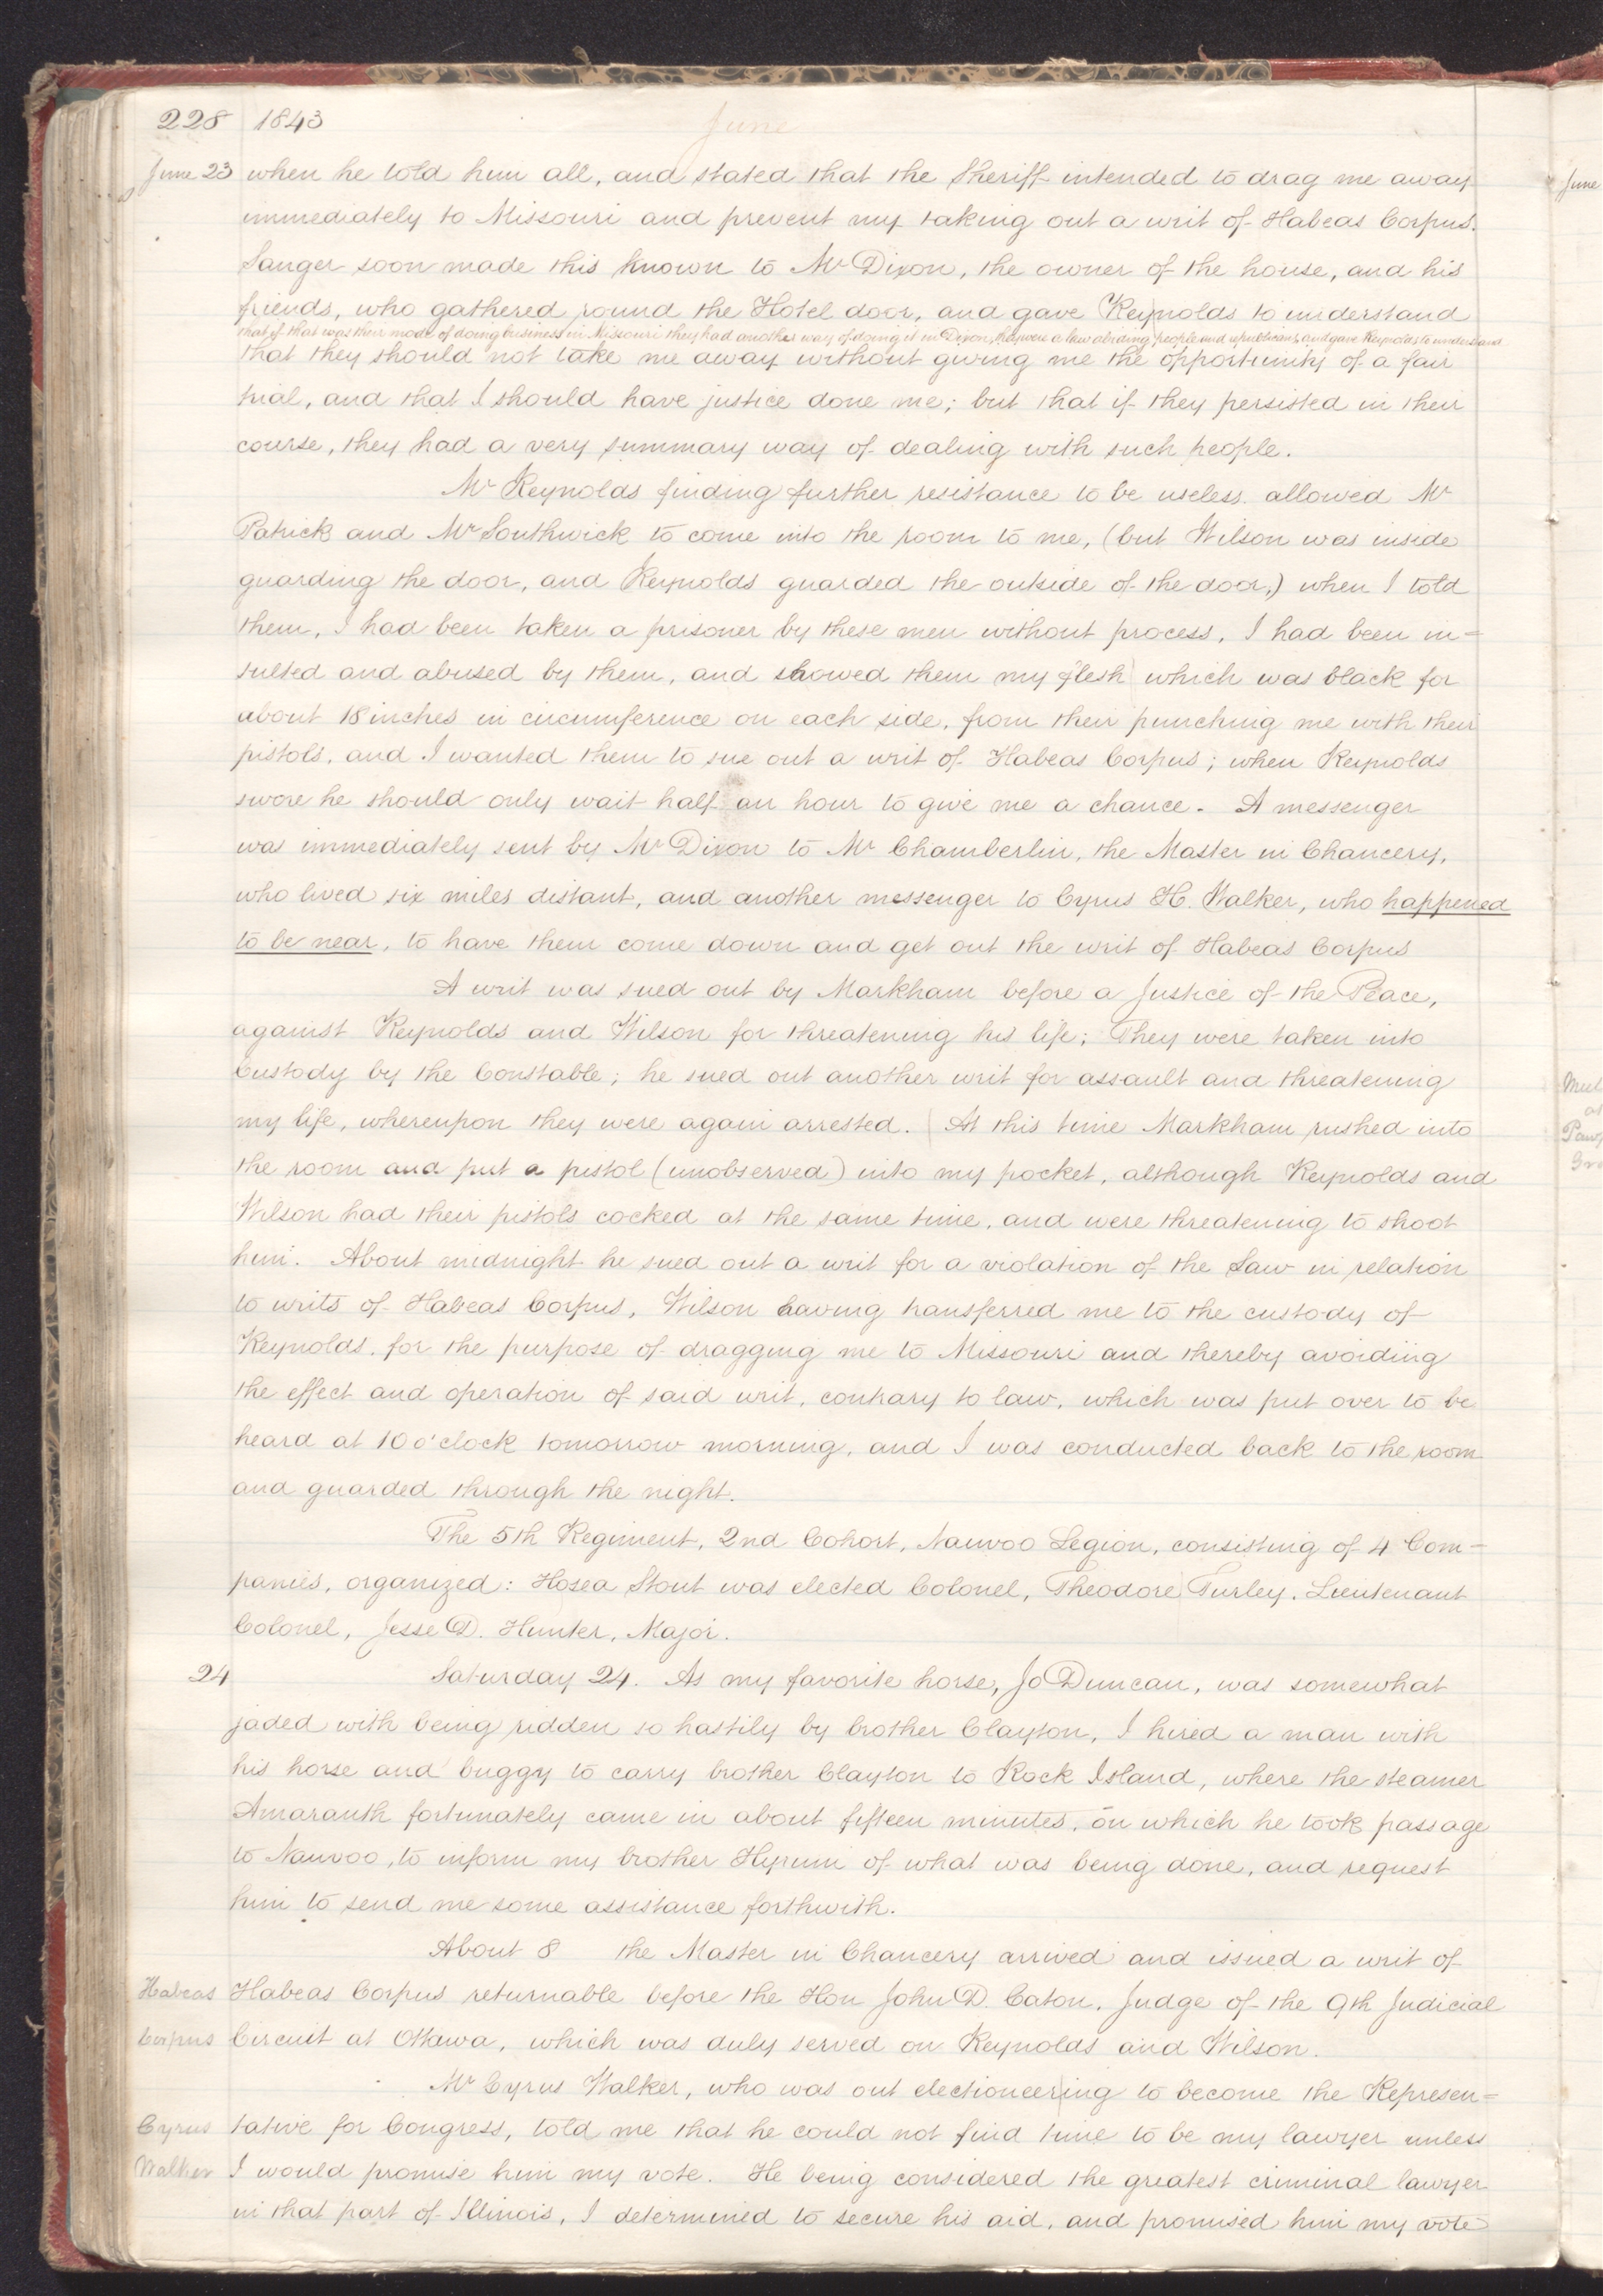 228 1843 June
June 23 when he told him all, and stated that the Sheriff intended to drag me away
immediately to Missouri and prevent my taking out a writ of Habeas Corpus.
Sanger soon made this known to Mr Dixon, the owner of the house, and his
friends, who gathered round the Hotel door, and gave Reynolds to understand
that if that was their mode of doing business in Missouri they had another way of doing it in Dixon, they were a law abiding people and republicans, and gave Reynolds to understand
that they should not take me away without giving me the opportunity of a fair
trial, and that I should have justice done me; but that if they persisted in their
course, they had a very summary way of dealing with such people.
Mr Reynolds finding further resistance to be useless allowed Mr
Patrick and Mr Southwick to come into the room to me, (but Wilson was inside
guarding the door, and Reynolds guarded the outside of the door,) when I told
them, I had been taken a prisoner by these men without process, I had been in=
sulted and abused by them, and showed them my flesh which was black for
about 18 inches in circumference on each side, from their punching me with their
pistols, and I wanted them to sue out a writ of Habeas Corpus; when Reynolds
swore he should only wait half an hour to give me a chance. A messenger
was immediately sent by Mr Dixon to Mr Chamberlin, the Master in Chancery,
who lived six miles distant, and another messenger to Cyrus H. Walker, who happened
to be near, to have them come down and get out the writ of Habeas Corpus
A writ was sued out by Markham before a Justice of the Peace,
against Reynolds and Wilson for threatening his life; They were taken into
Custody by the Constable; he sued out another writ for assault and threatening
my life, whereupon they were again arrested. At this time Markham rushed into
the room and put a pistol (unobserved) into my pocket, although Reynolds and
Wilson had their pistols cocked at the same time, and were threatening to shoot
him. About midnight he sued out a writ for a violation of the Law in relation
to writs of Habeas Corpus, Wilson having transferred me to the custody of
Reynolds, for the purpose of dragging me to Missouri and thereby avoiding
the effect and operation of said writ, contrary to law, which was put over to be
heard at 10 o'clock tomorrow morning, and I was conducted back to the room
and guarded through the night.
The 5th Regiment, 2nd Cohort, Nauvoo Legion, consisting of 4 Com=
panies, organized: Hosea Stout was elected Colonel, Theodore Turley, Lieutenant
Colonel, Jesse D. Hunter, Major.
24 Saturday 24. As my favorite horse, Jo Duncan, was somewhat
jaded with being ridden so hastily by brother Clayton, I hired a man with
his horse and buggy to carry brother Clayton to Rock Island, where the steamer
Amaranth fortunately came in about fifteen minutes, on which he took passage
to Nauvoo, to inform my brother Hyrum of what was being done, and request
him to send me some assistance forthwith.
About 8 the Master in Chancery arrived and issued a writ of
Habeas Habeas Corpus returnable before the Hon John D. Caton, Judge of the 9th Judicial
Corpus Circuit at Ottawa, which was duly served on Reynolds and Wilson.
Mr Cyrus Walker, who was out electioneering to become the Represen=
Cyrus tative for Congress, told me that he could not find time to be my lawyer unless
Walker I would promise him my vote. He being considered the greatest criminal lawyer
in that part of Illinois, I determined to secure his aid, and promised him my vote
June